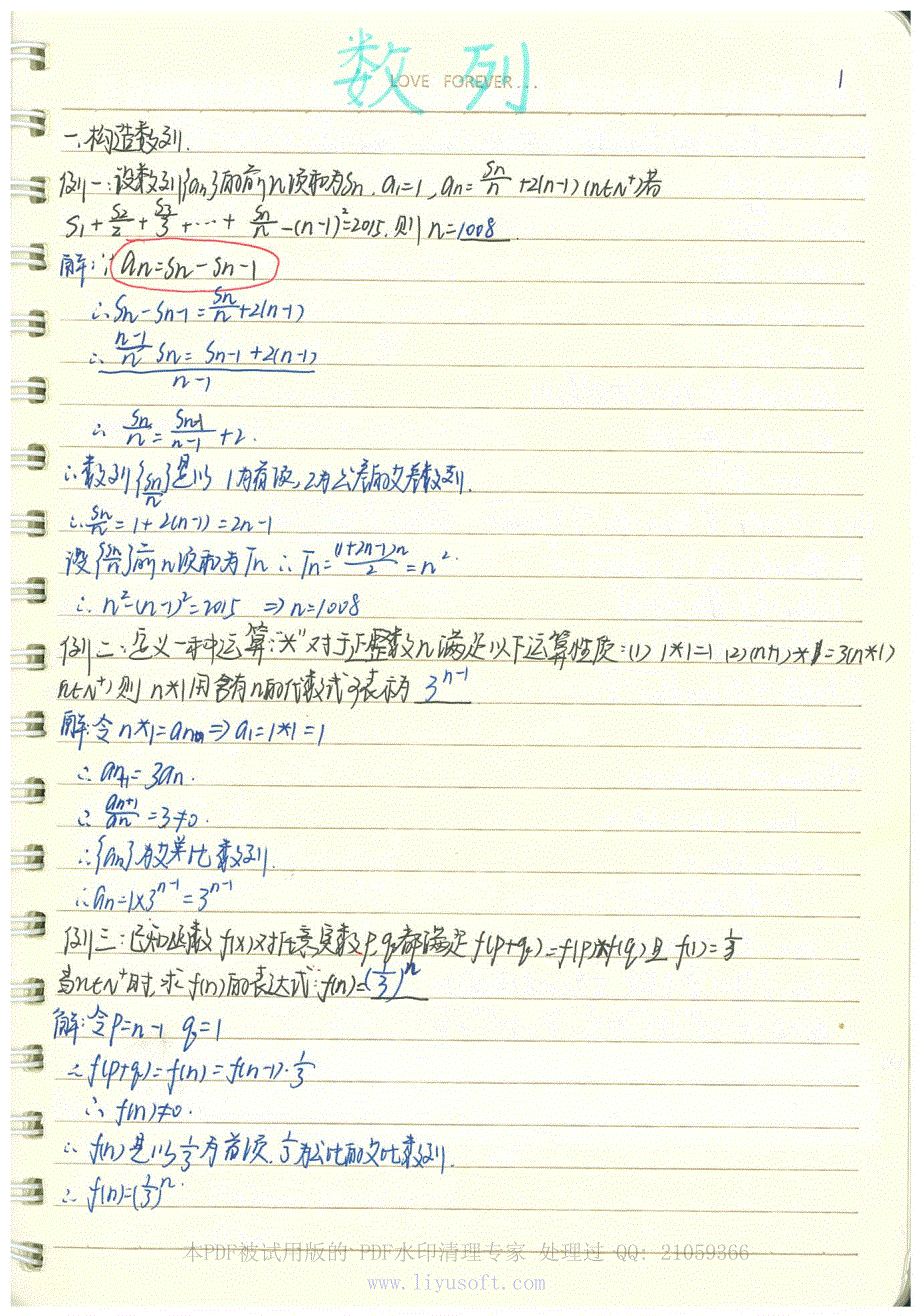 数列
LOVE FOREVER...
1
一、构造数列.
例一:设数列{an}的前n项和为Sn. a1=1, an=Sn/n+2(n-1)(n∈N+)若
S1+S2/2+S3/3+…+Sn/n-(n-1)²=2015.则n=1008
解:∵an=Sn-Sn-1
∴Sn-Sn-1=Sn/n+2(n-1)
∴(n-1)/n Sn=Sn-1+2(n-1)
n-1
∴Sn/n=Sn-1/(n-1)+2.
∴数列{Sn/n}是以1为首项,2为公差的等差数列.
∴Sn/n=1+2(n-1)=2n-1
设{Sn/n}前n项和为Tn∴Tn=(1+2n-1)n/2=n².
∴n²-(n-1)²=2015 ⇒n=1008
例二:定义一种运算:"*"对于正整数n满足以下运算性质:(1) 1*1=1 (2)(n+1)*1=3(n*1)
n∈N+)则n*1用含有n的代数式子表示为3^(n-1)
解:令n*1=an⇒a1=1*1=1
∴an+1=3an.
∴an+1/an=3≠0.
∴{an}为等比数列.
∴an=1×3^(n-1)=3^(n-1)
例三:已知函数f(x)对任意实数p,q都满足f(p+q)=f(p)×f(q)且f(1)=1/3
当n∈N+时,求f(n)的表达式:f(n)=(1/3)^n
解:令p=n-1 q=1
∴f(p+q)=f(n)=f(n-1)·1/3
∴f(n)≠0.
∴f(n)是以1/3为首项.1/3为公比的等比数列.
∴f(n)=(1/3)^n.
本PDF被试用版的 PDF水印清理专家 处理过 QQ: 21059366
www.liyusoft.com